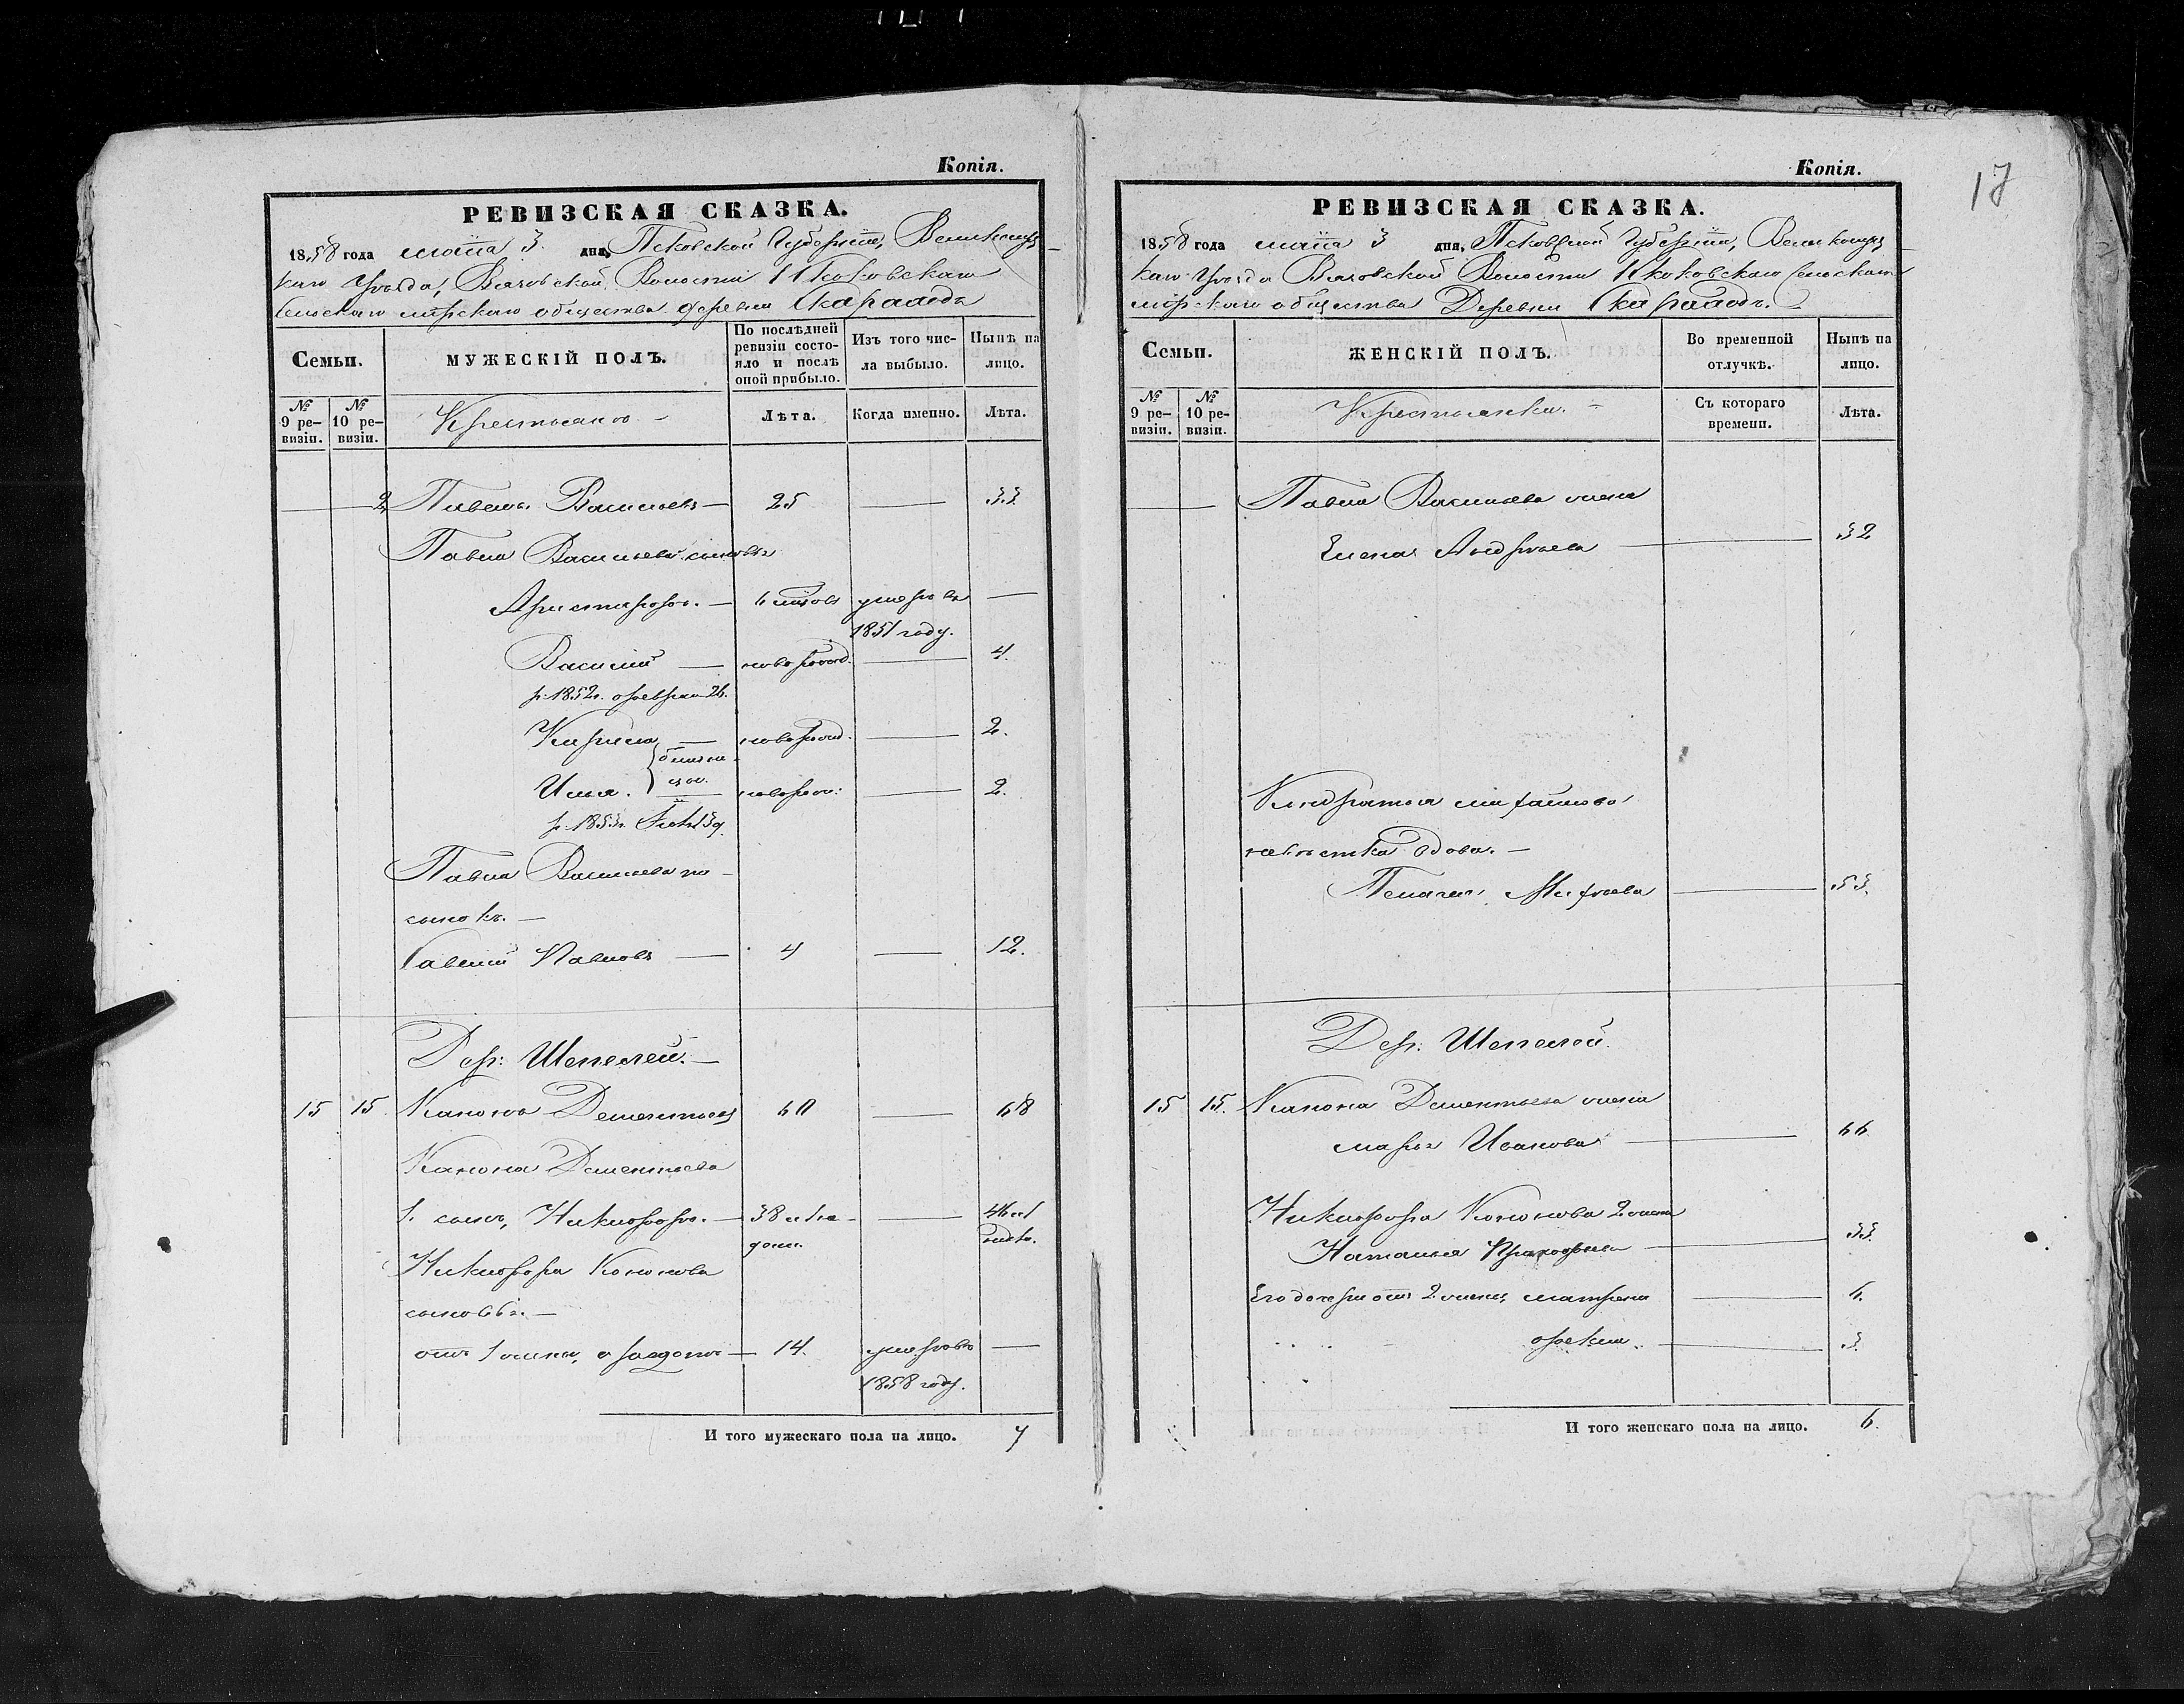 Копія.
РЕВИЗСКАЯ СКАЗКА.
1858 года маія 3 дня, Псковской Губерніи, Великолуц-
каго Уѣзда, Волости
Сельскаго мірскаго общества деревни
Семьи.
МУЖЕСКІЙ ПОЛЪ.
По послѣдней ревизіи состояло и послѣ оной прибыло.
Изъ того числа выбыло.
Нынѣ на лицо.
№ 9 ревизіи.
№ 10 ревизіи.
Крестьяне
Лѣта.
Когда именно.
Лѣта.
2 Павелъ Васильевъ — 25 — 33
Павла Васильева сыновья
— 6 умеръ въ —
1851 году.
Василій — новорожд. — 4.
р. 1852г. февраля 26.
Кирила — новорожд. — 2.
близне-
цы.
Илья. новорож: — 2.
р. 1853г.
Павла Васильева па-
сынокъ. —
Савелій Павловъ — 4 — 12.
Дер: Шепелей. —
15 15. Канонъ Дементьевъ 60 — 68
Канона Дементьева
1. сынъ, Никифоръ. — 38 — 46
Никифора Кононова
сыновья. —
отъ 1 жены, — 14. умеръ въ —
1858 году.
И того мужескаго пола на лицо. 7
Копія.
17
РЕВИЗСКАЯ СКАЗКА.
1858 года маія 3 дня, Псковской Губерніи, Великолуц-
каго Уѣзда Волости Сельскаго
мірскаго общества Деревни
Семьи.
ЖЕНСКІЙ ПОЛЪ.
Во временной отлучкѣ.
Нынѣ на лицо.
№ 9 ревизіи.
№ 10 ревизіи.
Крестьянки. —
Съ котораго времени.
Лѣта.
— Павла Васильева жена
Елена Андреева — 32
Кондратья
невѣстка вдова. —
Пелагея — 53.
Дер. Шепелей.
15 15. Канона Дементьева жена
Марья Иванова — 66
Никифора Кононова 2 жена
Наталья Прокофьева — 33.
Его дочери отъ 2 жены, Матрена — 6.
Фекла. — 3.
И того женскаго пола на лицо. 6.